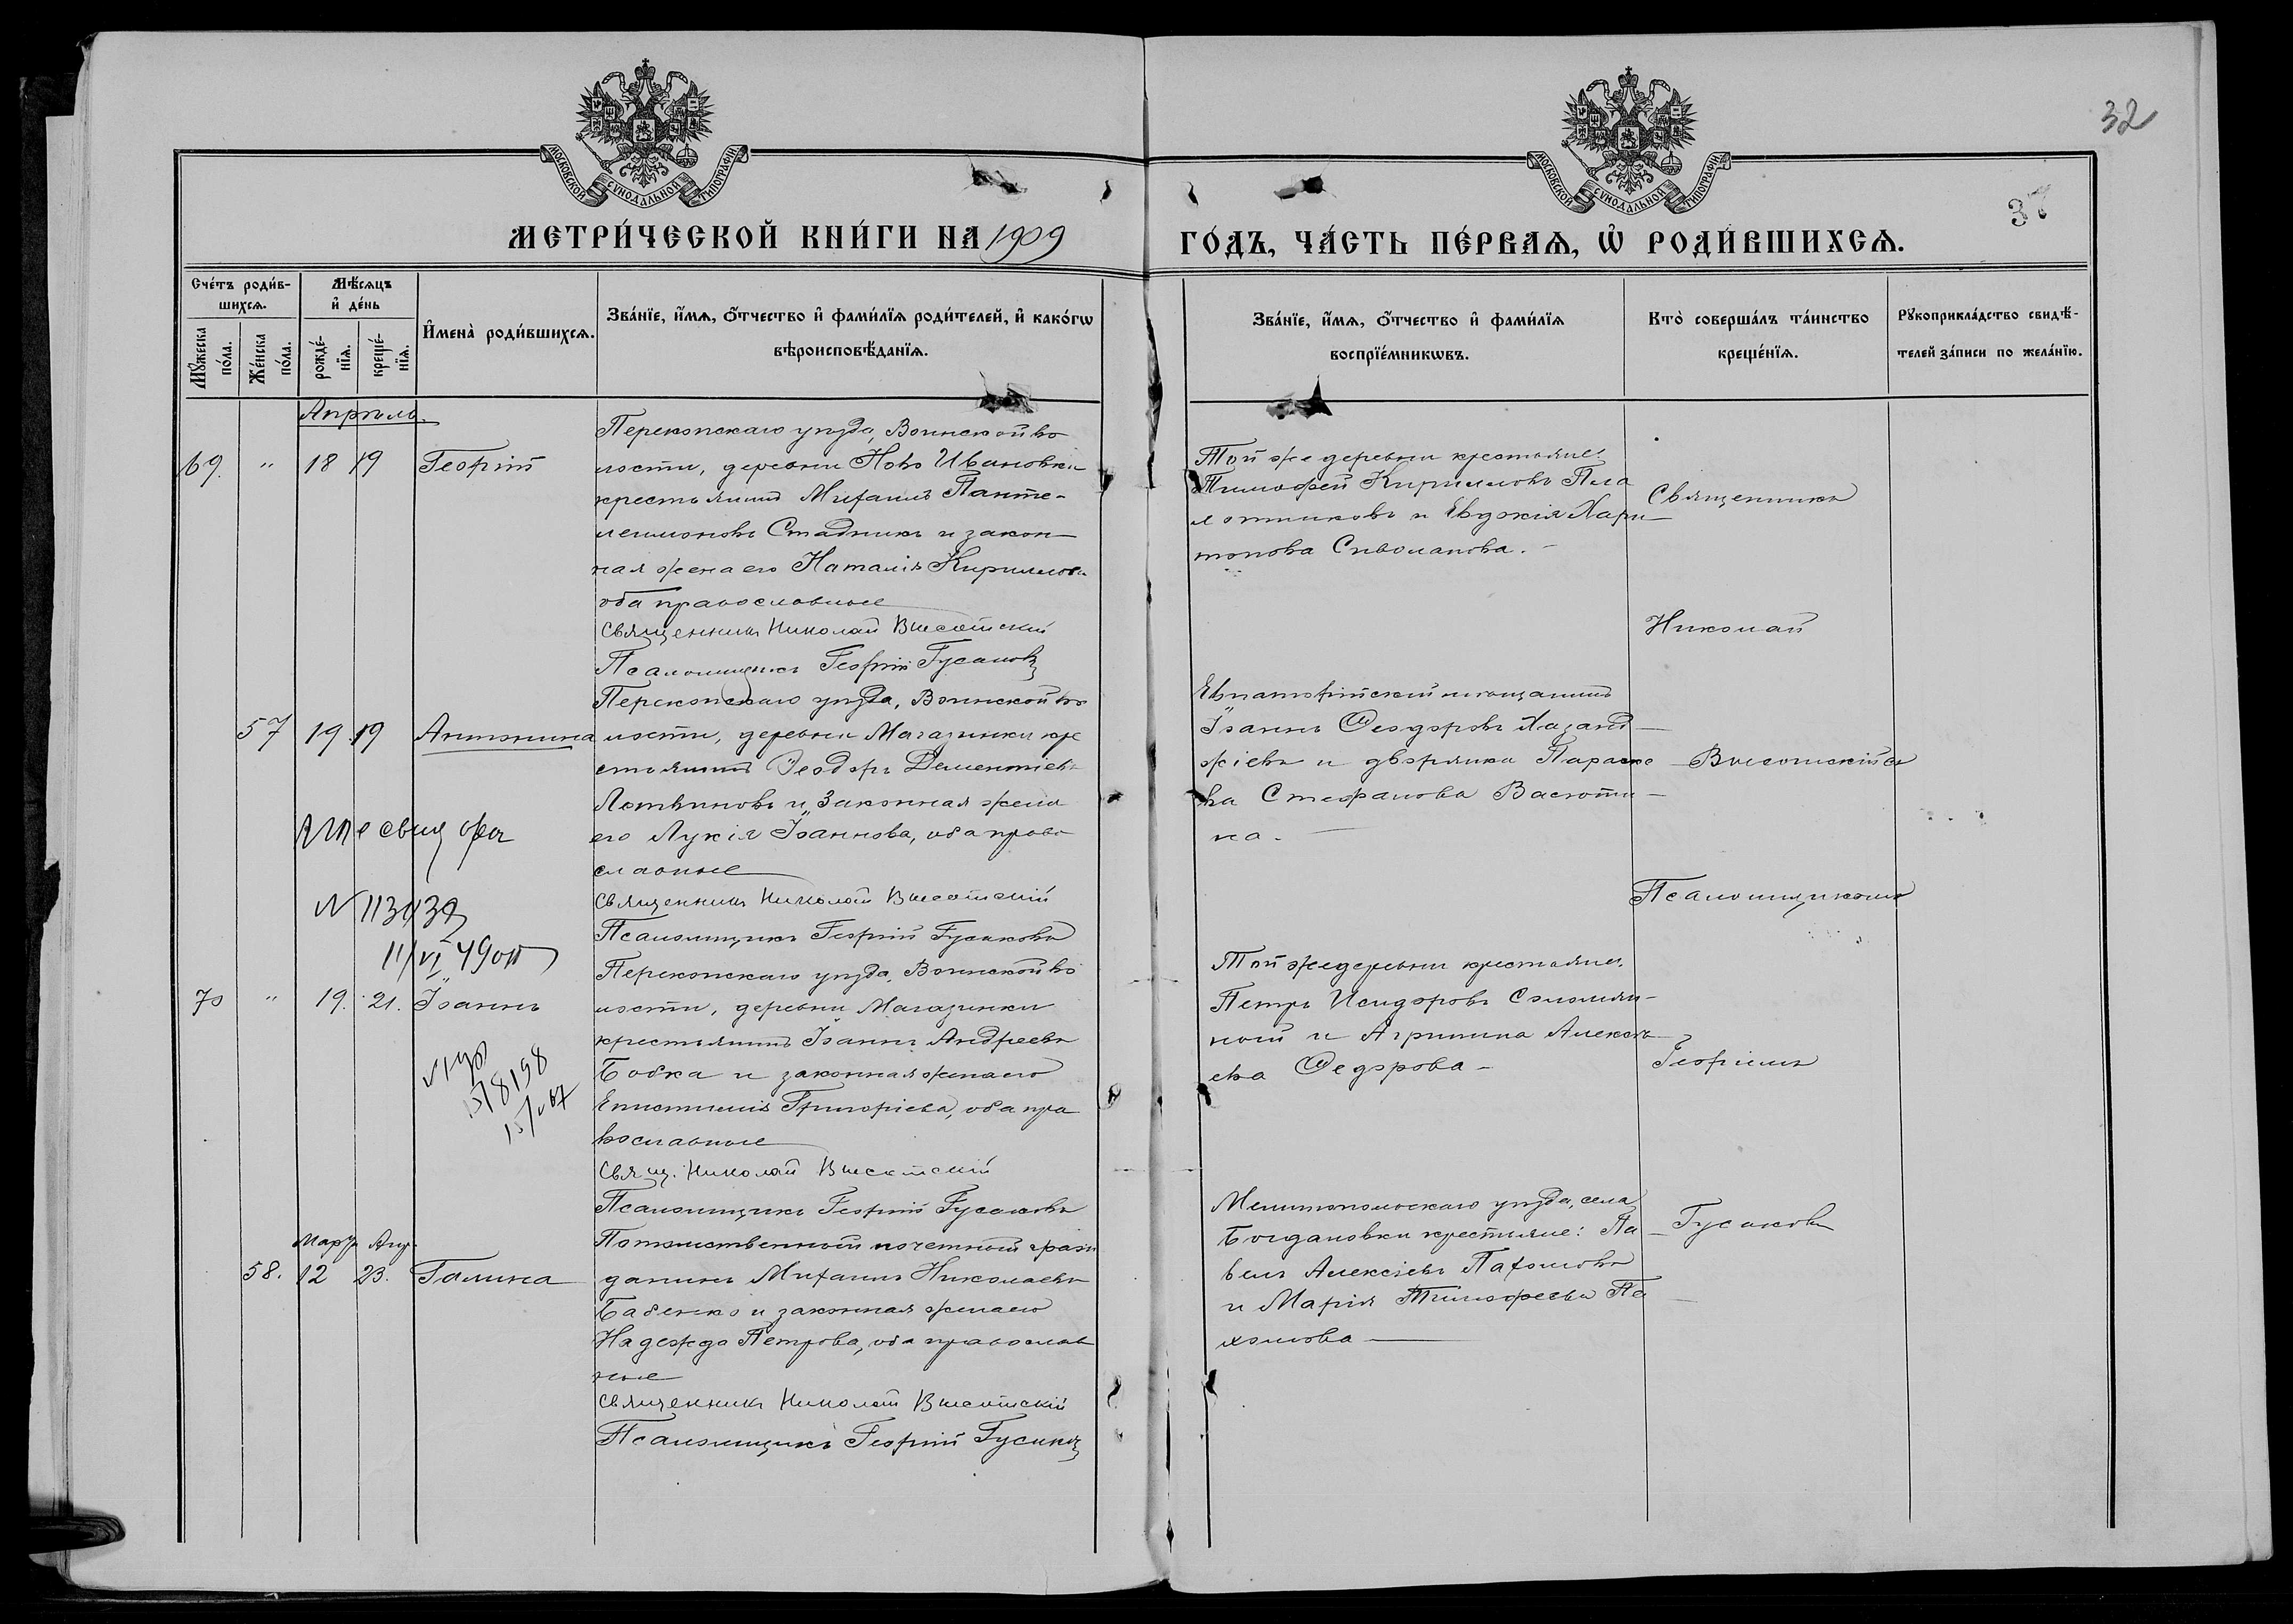 32
37
МОСКОВСКОЙ СѴНОДАЛЬНОЙ ТИПОГРАФІИ
МОСКОВСКОЙ СѴНОДАЛЬНОЙ ТИПОГРАФІИ
МЕТРИ́ЧЕСКОЙ КНИ́ГИ НА 1909
ГО́ДЪ, ЧА́СТЬ ПЕ́РВАѦ, Ѡ҆ РОДИ́ВШИХСѦ.
Сче́тъ роди́в-
шихсѧ.
Мꙋ́жеска
по́ла.
Же́нска
по́ла.
Мѣ́сяцъ
и҆ де́нь
рожде́-
нїѧ.
креще́-
нїѧ.
И҆мена̀ роди́вшихсѧ.
Зва́нїе, и҆́мѧ, ѻ҆́тчество и҆ фами́лїѧ роди́телей, и҆ како́гѡ
вѣроисповѣ́данїѧ.
Зва́нїе, и҆́мѧ, ѻ҆́тчество и҆ фами́лїѧ
воспрїе́мникѡвъ.
Кто̀ соверша́лъ та́инство
креще́нїѧ.
Рꙋкоприкла́дство свидѣ́-
телей за́писи по жела́нїю.
Апрѣль.
69. " 18 19 Георгій
Перекопскаго уѣзда, Воинской во
лости, деревни Ново Ивановки
крестьянинъ Михаилъ Панте-
леимоновъ Стадникъ и закон-
ная жена его Наталія Кириллова
оба православные
Священникъ Николай Высотскій
Псаломщикъ Георгій Гусаковъ
Той же деревни крестьяне:
Тимофей Кирилловъ Пла
лотниковъ и Евдокія Хари-
тонова Сиволапова. -
57 19 19 Антонина
Перекопскаго уѣзда, Воинской во
лости, деревни Магазинки кре
стьянинъ Ѳеодоръ Дементіевъ
Литвиновъ и законная жена
его Лукія Іоаннова, оба право
славные
Священникъ Николай Высотскій
Псаломщикъ Георгій Гусаковъ
Евпаторійскій мѣщанинъ
Іоаннъ Ѳеодоровъ Хаганд-
жіевъ и дворянка Параске
ва Стефанова Васюти-
на. -
70 " 19. 21. Іоаннъ
Перекопскаго уѣзда, Воинской во
лости, деревни Магазинки
крестьянинъ Іоаннъ Андреевъ
Бобка и законная жена его
Епистимія Григоріева, оба пра
вославные
Свящ. Николай Высотскій
Псаломщикъ Георгій Гусаковъ
Той же деревни крестьяне:
Петръ Исидоровъ Соломян-
ной и Агрипина Алексѣ-
ева Ѳедорова -
Мартъ Апр.
58. 12 23. Галина
Потомственный почетный граж
данинъ Михаилъ Николаевъ
Бабенко и законная жена его
Надежда Петрова, оба православ
ные
Священникъ Николай Высотскій
Псаломщикъ Георгій Гусаковъ
Мелитопольскаго уѣзда, села
Богдановки крестьяне: Па-
велъ Алексіевъ Пахомовъ
и Марія Тимофеева Па-
хомова -
Священникъ
Николай
Высотскій съ
Псаломщикомъ
Георгіемъ
Гусаковъ